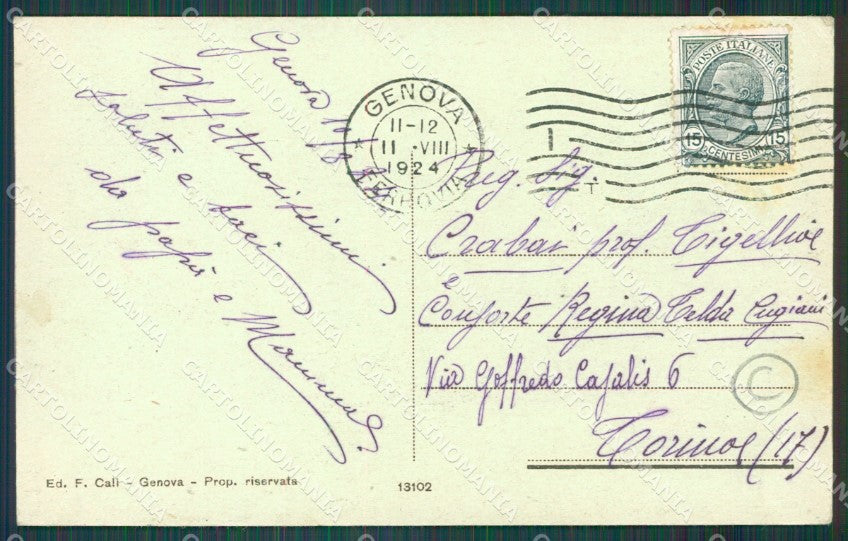 Genova 11/8 24
Affettuosissimi
saluti e baci
da papà e Mamma
GENOVA
11-12
11 · VIII
1924
FERROVIA
POSTE ITALIANE
15 15
CENTESIMI
Preg. Sig.
Crabai prof. Tigellio
e
Consorte Regina Telda
Via Goffredo Casalis 6
Torino (17)
Ed. F. Calì - Genova - Prop. riservata
13102
C
CARTOLINOMANIA